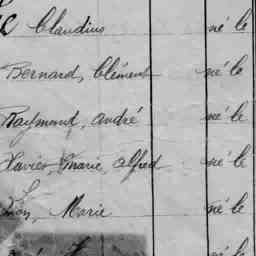 Claudius né le
Bernard, Clément né le
Raymond, André né le
Xavier, Marie, Alfred né le
Marie né le
né le